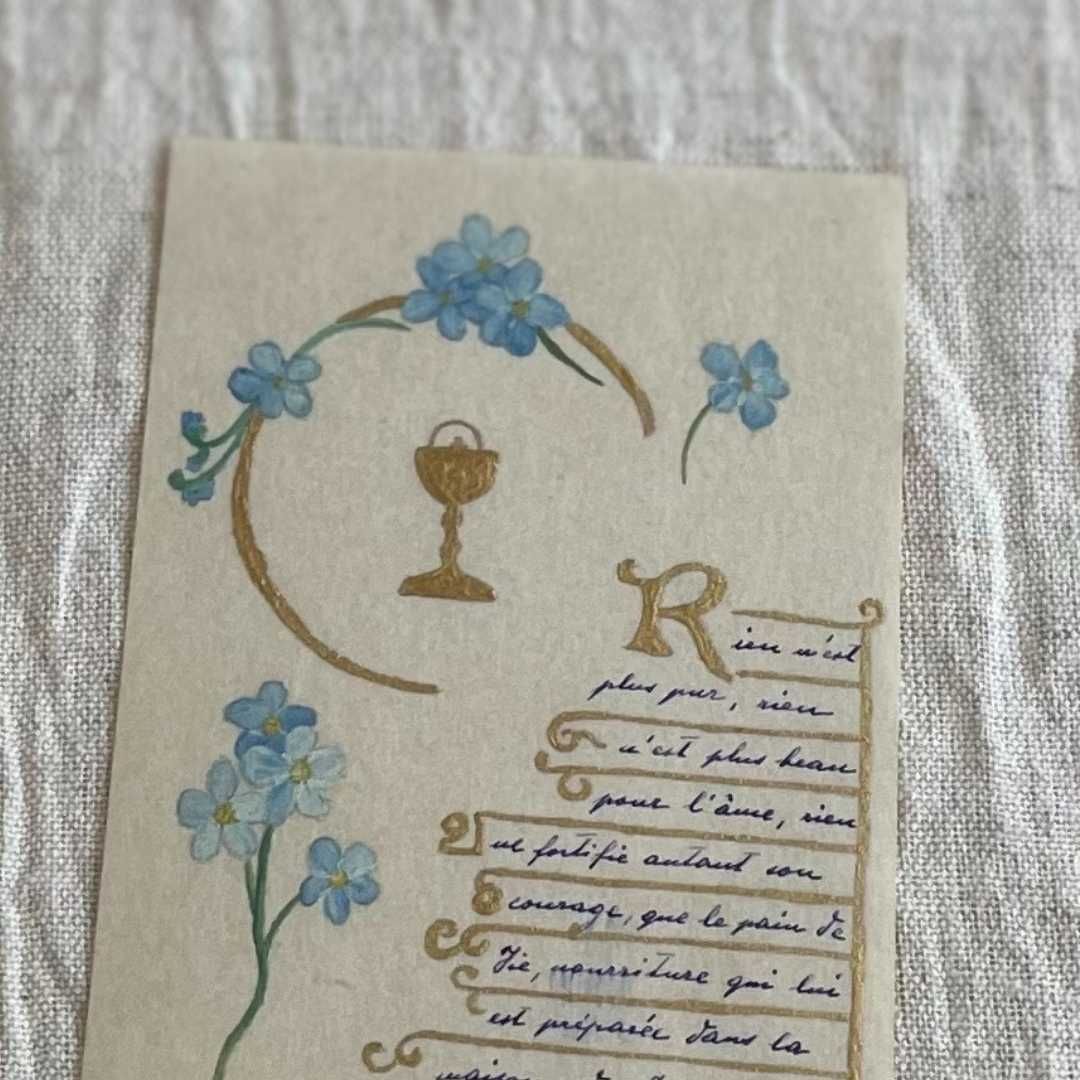 Rien n'est
plus pur, rien
n'est plus beau
pour l'âme, rien
ne fortifie autant son
courage, que le pain de
Vie, nourriture qui lui
est préparée dans la